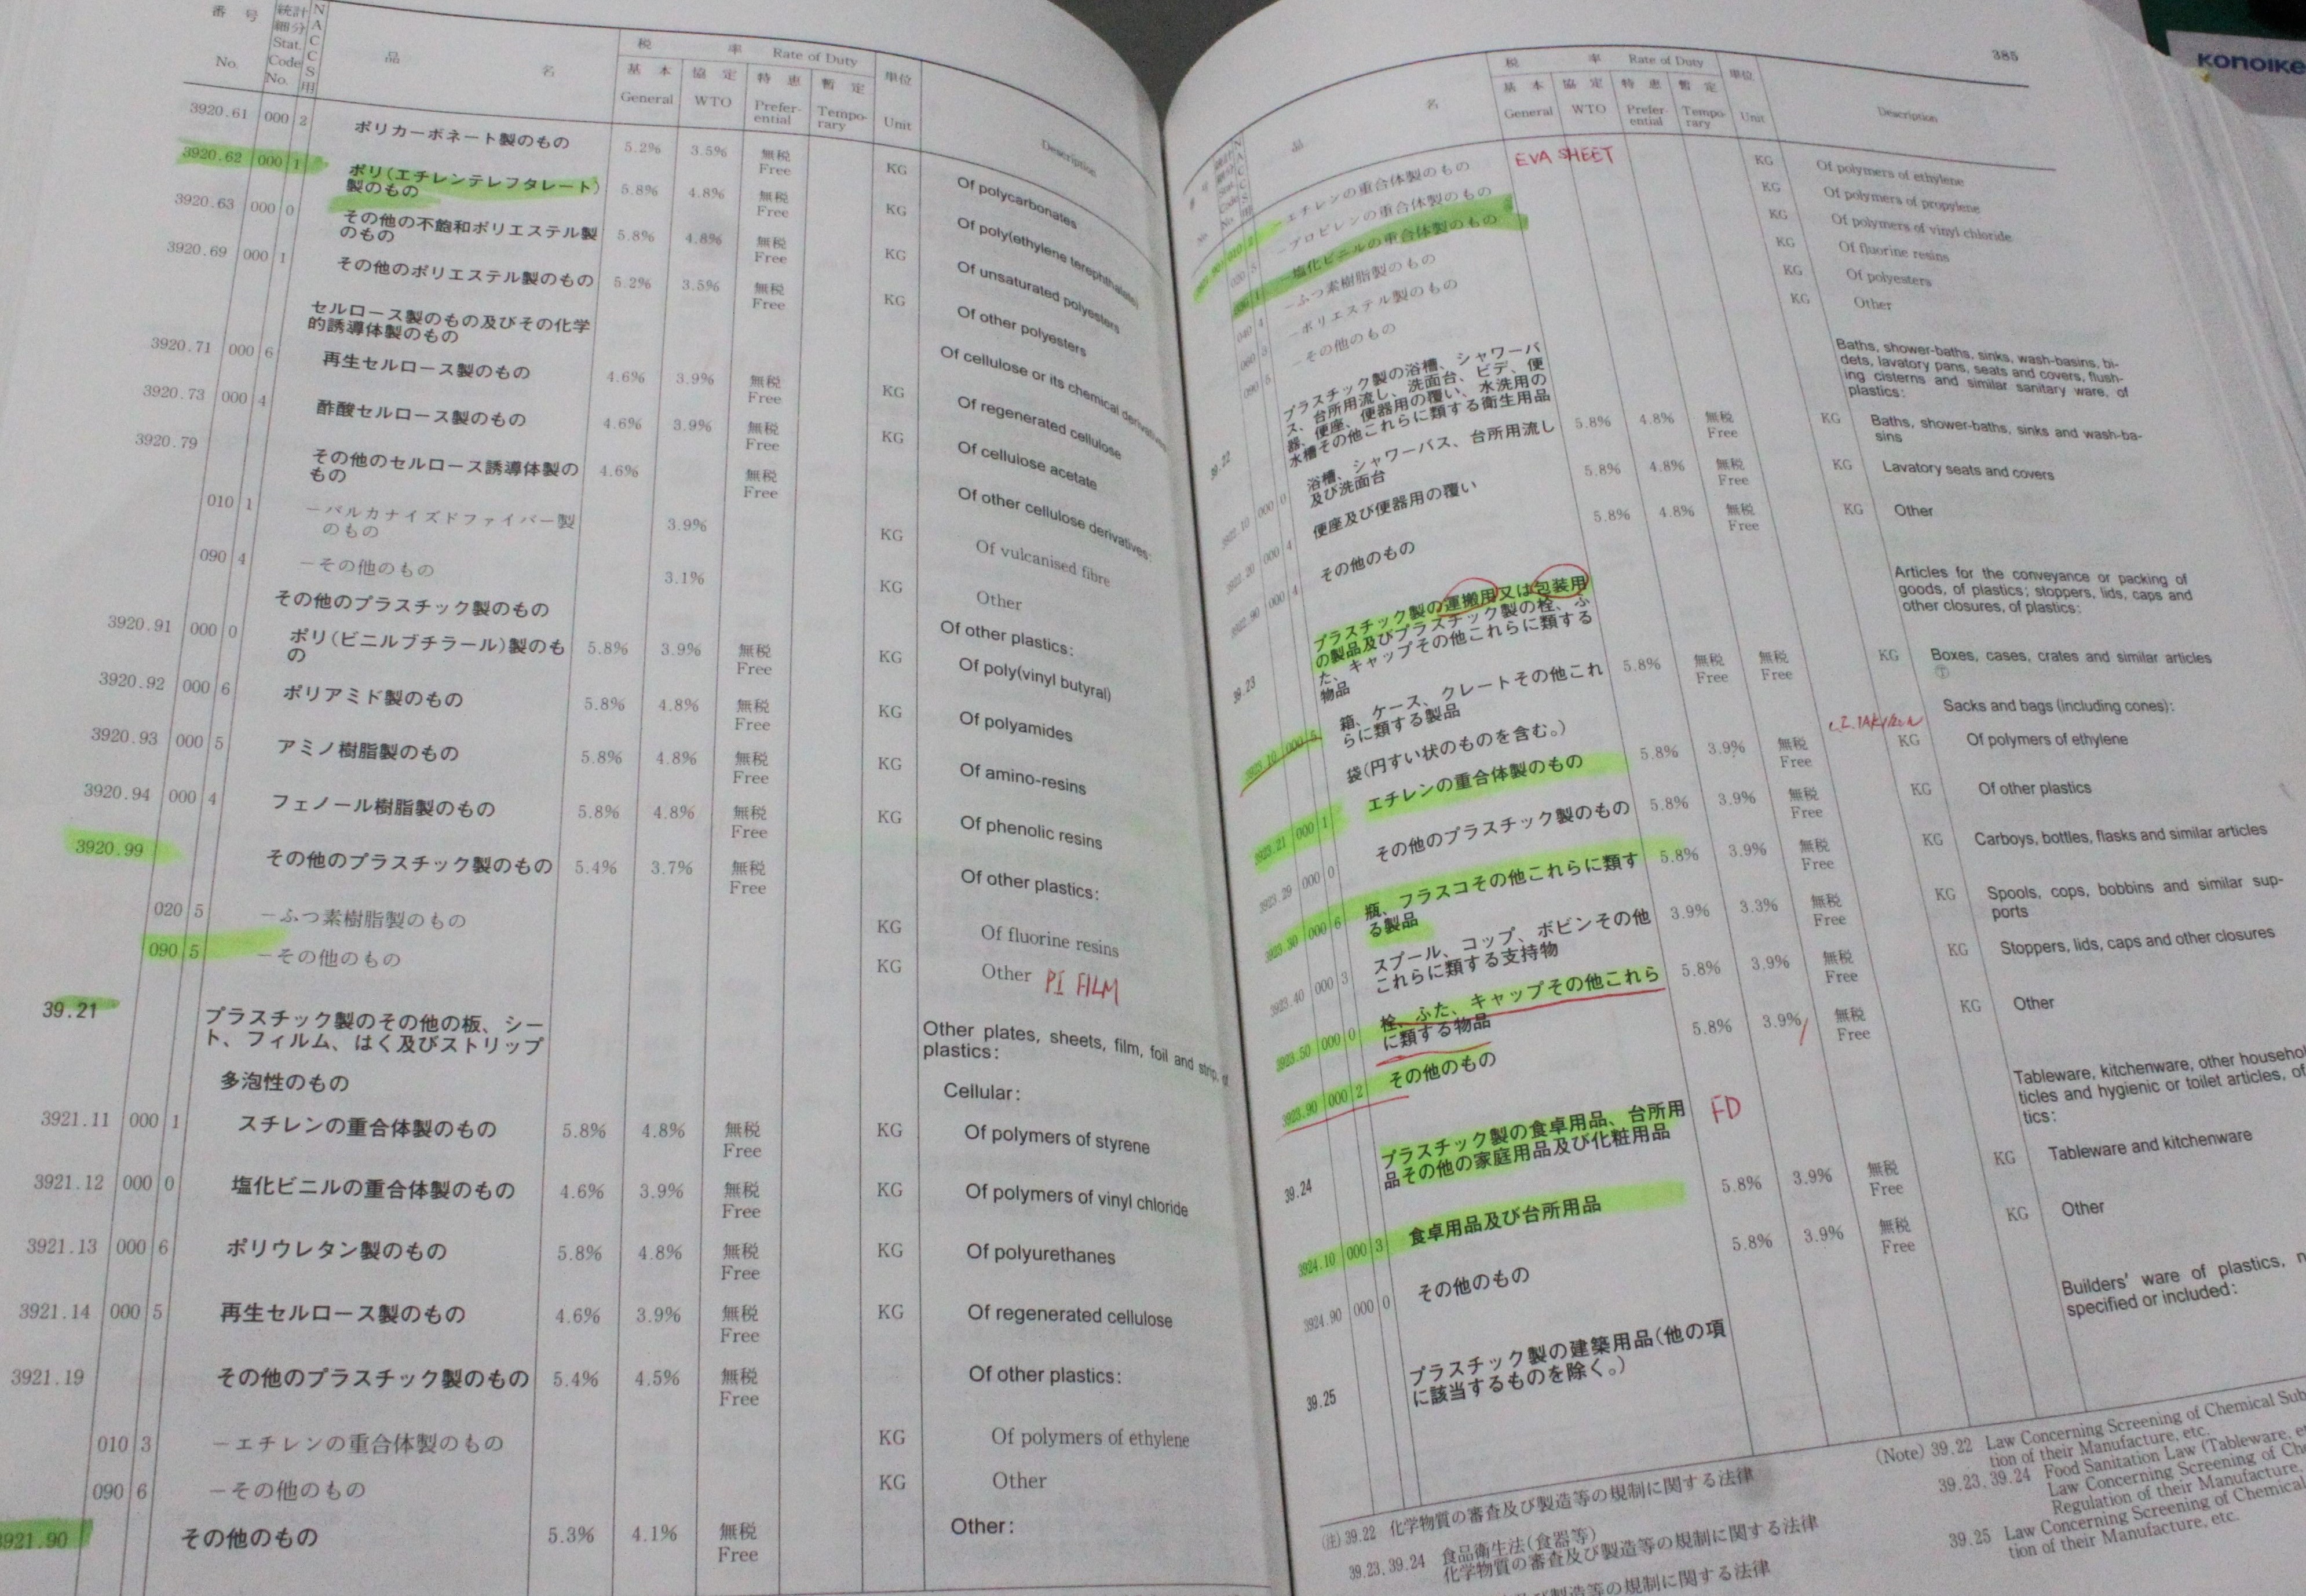 番 号
統計
細分
Stat.
Code
No.
NACCS用
No.
品 名
税 率 Rate of Duty
基 本 協 定 特 恵 暫 定
General WTO Prefer-ential Tempo-rary
単位
Unit
Description
3920.61 000 2 ポリカーボネート製のもの 5.2% 3.5% 無税 Free KG Of polycarbonates
3920.62 000 1 ポリ(エチレンテレフタレート)製のもの 5.8% 4.8% 無税 Free KG Of poly(ethylene terephthalate)
3920.63 000 0 その他の不飽和ポリエステル製のもの 5.8% 4.8% 無税 Free KG Of unsaturated polyesters
3920.69 000 1 その他のポリエステル製のもの 5.2% 3.5% 無税 Free KG Of other polyesters
セルロース製のもの及びその化学的誘導体製のもの Of cellulose or its chemical derivatives
3920.71 000 6 再生セルロース製のもの 4.6% 3.9% 無税 Free KG Of regenerated cellulose
3920.73 000 4 酢酸セルロース製のもの 4.6% 3.9% 無税 Free KG Of cellulose acetate
3920.79 その他のセルロース誘導体製のもの 4.6% 無税 Free Of other cellulose derivatives:
010 1 −バルカナイズドファイバー製のもの 3.9% KG Of vulcanised fibre
090 4 −その他のもの 3.1% KG Other
その他のプラスチック製のもの Of other plastics:
3920.91 000 0 ポリ(ビニルブチラール)製のもの 5.8% 3.9% 無税 Free KG Of poly(vinyl butyral)
3920.92 000 6 ポリアミド製のもの 5.8% 4.8% 無税 Free KG Of polyamides
3920.93 000 5 アミノ樹脂製のもの 5.8% 4.8% 無税 Free KG Of amino-resins
3920.94 000 4 フェノール樹脂製のもの 5.8% 4.8% 無税 Free KG Of phenolic resins
3920.99 その他のプラスチック製のもの 5.4% 3.7% 無税 Free Of other plastics:
020 5 −ふつ素樹脂製のもの KG Of fluorine resins
090 5 −その他のもの KG Other PI FILM
39.21 プラスチック製のその他の板、シート、フィルム、はく及びストリップ Other plates, sheets, film, foil and strip, of plastics:
多泡性のもの Cellular:
3921.11 000 1 スチレンの重合体製のもの 5.8% 4.8% 無税 Free KG Of polymers of styrene
3921.12 000 0 塩化ビニルの重合体製のもの 4.6% 3.9% 無税 Free KG Of polymers of vinyl chloride
3921.13 000 6 ポリウレタン製のもの 5.8% 4.8% 無税 Free KG Of polyurethanes
3921.14 000 5 再生セルロース製のもの 4.6% 3.9% 無税 Free KG Of regenerated cellulose
3921.19 その他のプラスチック製のもの 5.4% 4.5% 無税 Free Of other plastics:
010 3 −エチレンの重合体製のもの KG Of polymers of ethylene
090 6 −その他のもの KG Other
3921.90 その他のもの 5.3% 4.1% 無税 Free Other:
385
KONOIKE
品 名
税 率 Rate of Duty
基 本 協 定 特 恵 暫 定
General WTO Prefer-ential Tempo-rary
単位
Unit
Description
3921.90 010 2 −エチレンの重合体製のもの EVA SHEET KG Of polymers of ethylene
020 5 −プロピレンの重合体製のもの KG Of polymers of propylene
030 1 −塩化ビニルの重合体製のもの KG Of polymers of vinyl chloride
040 4 −ふつ素樹脂製のもの KG Of fluorine resins
060 3 −ポリエステル製のもの KG Of polyesters
090 5 −その他のもの KG Other
39.22 プラスチック製の浴槽、シャワーバス、台所用流し、洗面台、ビデ、便器、便座、便器用の覆い、水洗用の水槽その他これらに類する衛生用品 Baths, shower-baths, sinks, wash-basins, bidets, lavatory pans, seats and covers, flushing cisterns and similar sanitary ware, of plastics:
3922.10 000 0 浴槽、シャワーバス、台所用流し及び洗面台 5.8% 4.8% 無税 Free KG Baths, shower-baths, sinks and wash-basins
3922.20 000 4 便座及び便器用の覆い 5.8% 4.8% 無税 Free KG Lavatory seats and covers
3922.90 000 4 その他のもの 5.8% 4.8% 無税 Free KG Other
39.23 プラスチック製の運搬用又は包装用の製品及びプラスチック製の栓、ふた、キャップその他これらに類する物品 Articles for the conveyance or packing of goods, of plastics; stoppers, lids, caps and other closures, of plastics:
3923.10 000 5 箱、ケース、クレートその他これらに類する製品 5.8% 無税 Free 無税 Free KG Boxes, cases, crates and similar articles ①
袋(円すい状のものを含む。) Sacks and bags (including cones):
3923.21 000 1 エチレンの重合体製のもの 5.8% 3.9% 無税 Free KG Of polymers of ethylene
3923.29 000 0 その他のプラスチック製のもの 5.8% 3.9% 無税 Free KG Of other plastics
3923.30 000 6 瓶、フラスコその他これらに類する製品 5.8% 3.9% 無税 Free KG Carboys, bottles, flasks and similar articles
3923.40 000 3 スプール、コップ、ボビンその他これらに類する支持物 3.9% 3.3% 無税 Free KG Spools, cops, bobbins and similar supports
3923.50 000 0 栓、ふた、キャップその他これらに類する物品 5.8% 3.9% 無税 Free KG Stoppers, lids, caps and other closures
3923.90 000 2 その他のもの 5.8% 3.9% 無税 Free KG Other
39.24 プラスチック製の食卓用品、台所用品その他の家庭用品及び化粧用品 FD Tableware, kitchenware, other househol ticles and hygienic or toilet articles, of tics:
3924.10 000 3 食卓用品及び台所用品 5.8% 3.9% 無税 Free KG Tableware and kitchenware
3924.90 000 0 その他のもの 5.8% 3.9% 無税 Free KG Other
39.25 プラスチック製の建築用品(他の項に該当するものを除く。) Builders' ware of plastics, n specified or included:
(注) 39.22 化学物質の審査及び製造等の規制に関する法律
39.23、39.24 食品衛生法(食器等)
化学物質の審査及び製造等の規制に関する法律
製造等の規制に関する法律
(Note) 39.22 Law Concerning Screening of Chemical Sub
tion of their Manufacture, etc.
39.23、39.24 Food Sanitation Law (Tableware, e
Law Concerning Screening of Che
Regulation of their Manufacture,
39.25 Law Concerning Screening of Chemical
tion of their Manufacture, etc.